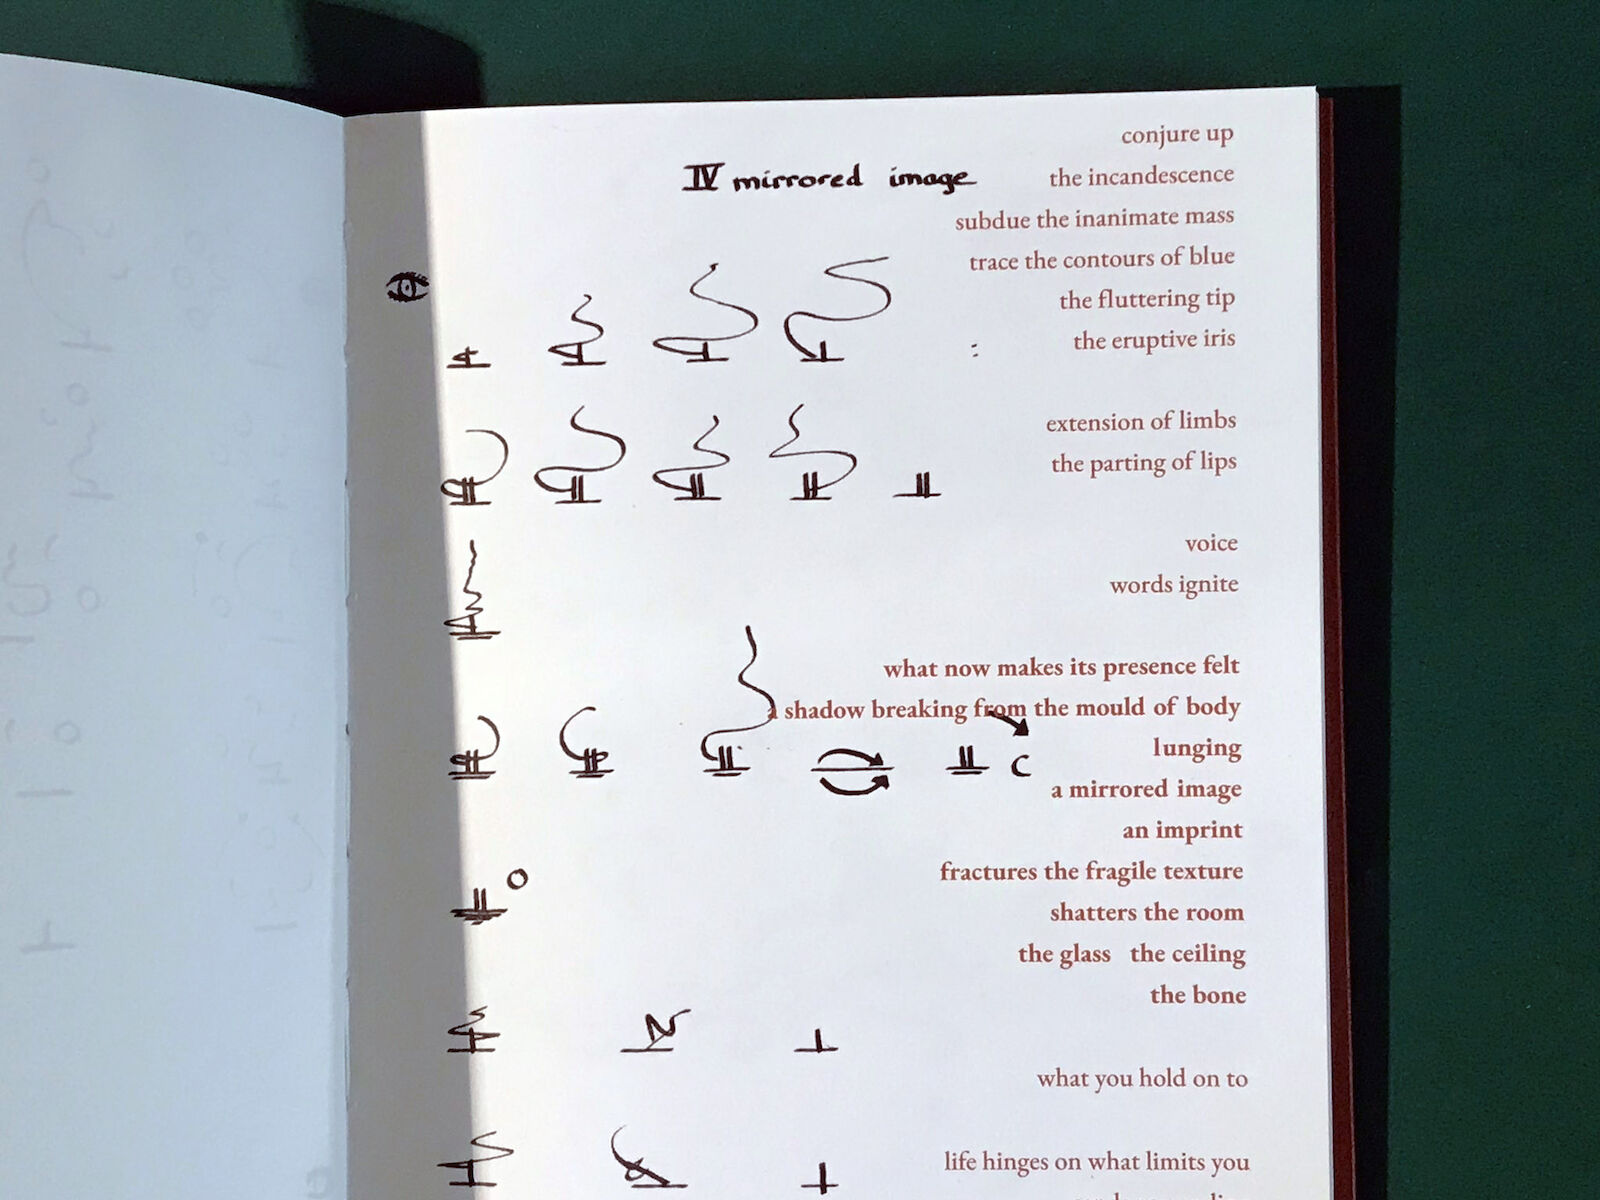 conjure up
IV mirrored image
the incandescence
subdue the inanimate mass
trace the contours of blue
the fluttering tip
the eruptive iris
extension of limbs
the parting of lips
voice
words ignite
what now makes its presence felt
a shadow breaking from the mould of body
lunging
a mirrored image
an imprint
fractures the fragile texture
shatters the room
the glass the ceiling
the bone
what you hold on to
life hinges on what limits you